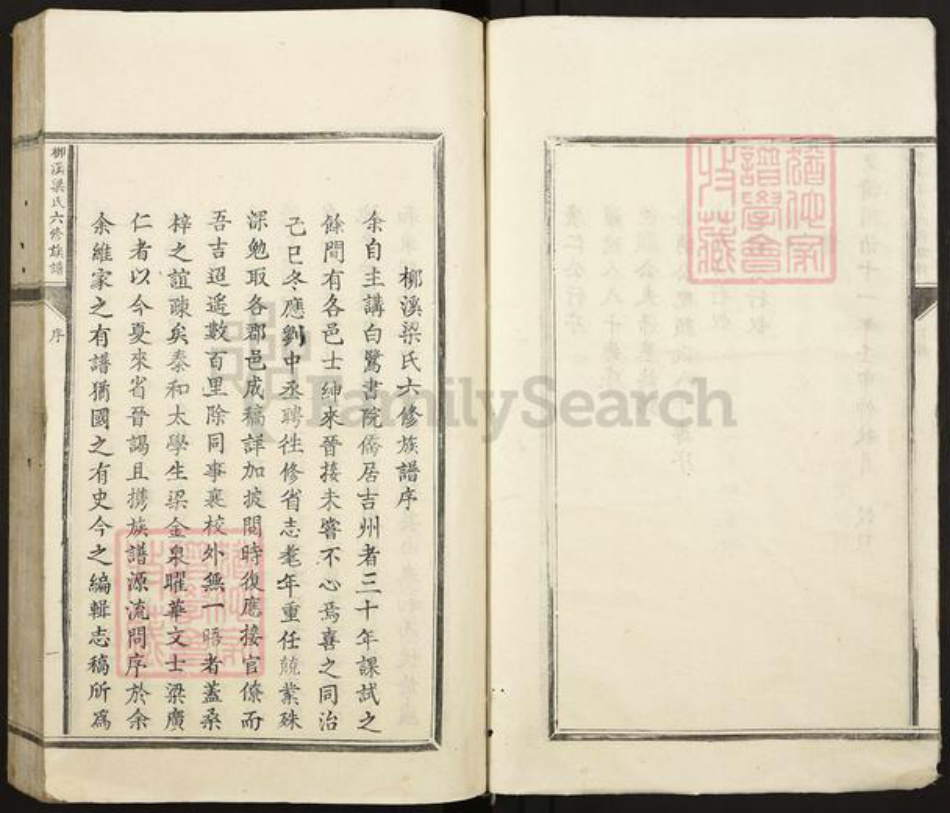 柳溪梁氏六修族譜序
余自主講白鷺書院僑居吉州者三十年課試之
餘間有各邑士紳來晉接未嘗不心焉喜之同治
己巳冬應劉中丞聘徃修省志耄年重任兢業殊
深勉取各郡邑成稿詳加披閱時復應接官僚而
吾吉迢遙數百里除同事襄校外無一晤者蓋桑
梓之誼疎矣泰和太學生梁金泉曜華文士梁廣
仁者以今夏來省晉謁且攜族譜源流問序於余
余維家之有譜猶國之有史今之編輯志稿所爲
柳溪梁氏六修族譜
序
猶他家譜學會收藏
猶他家譜學會收藏
FamilySearch